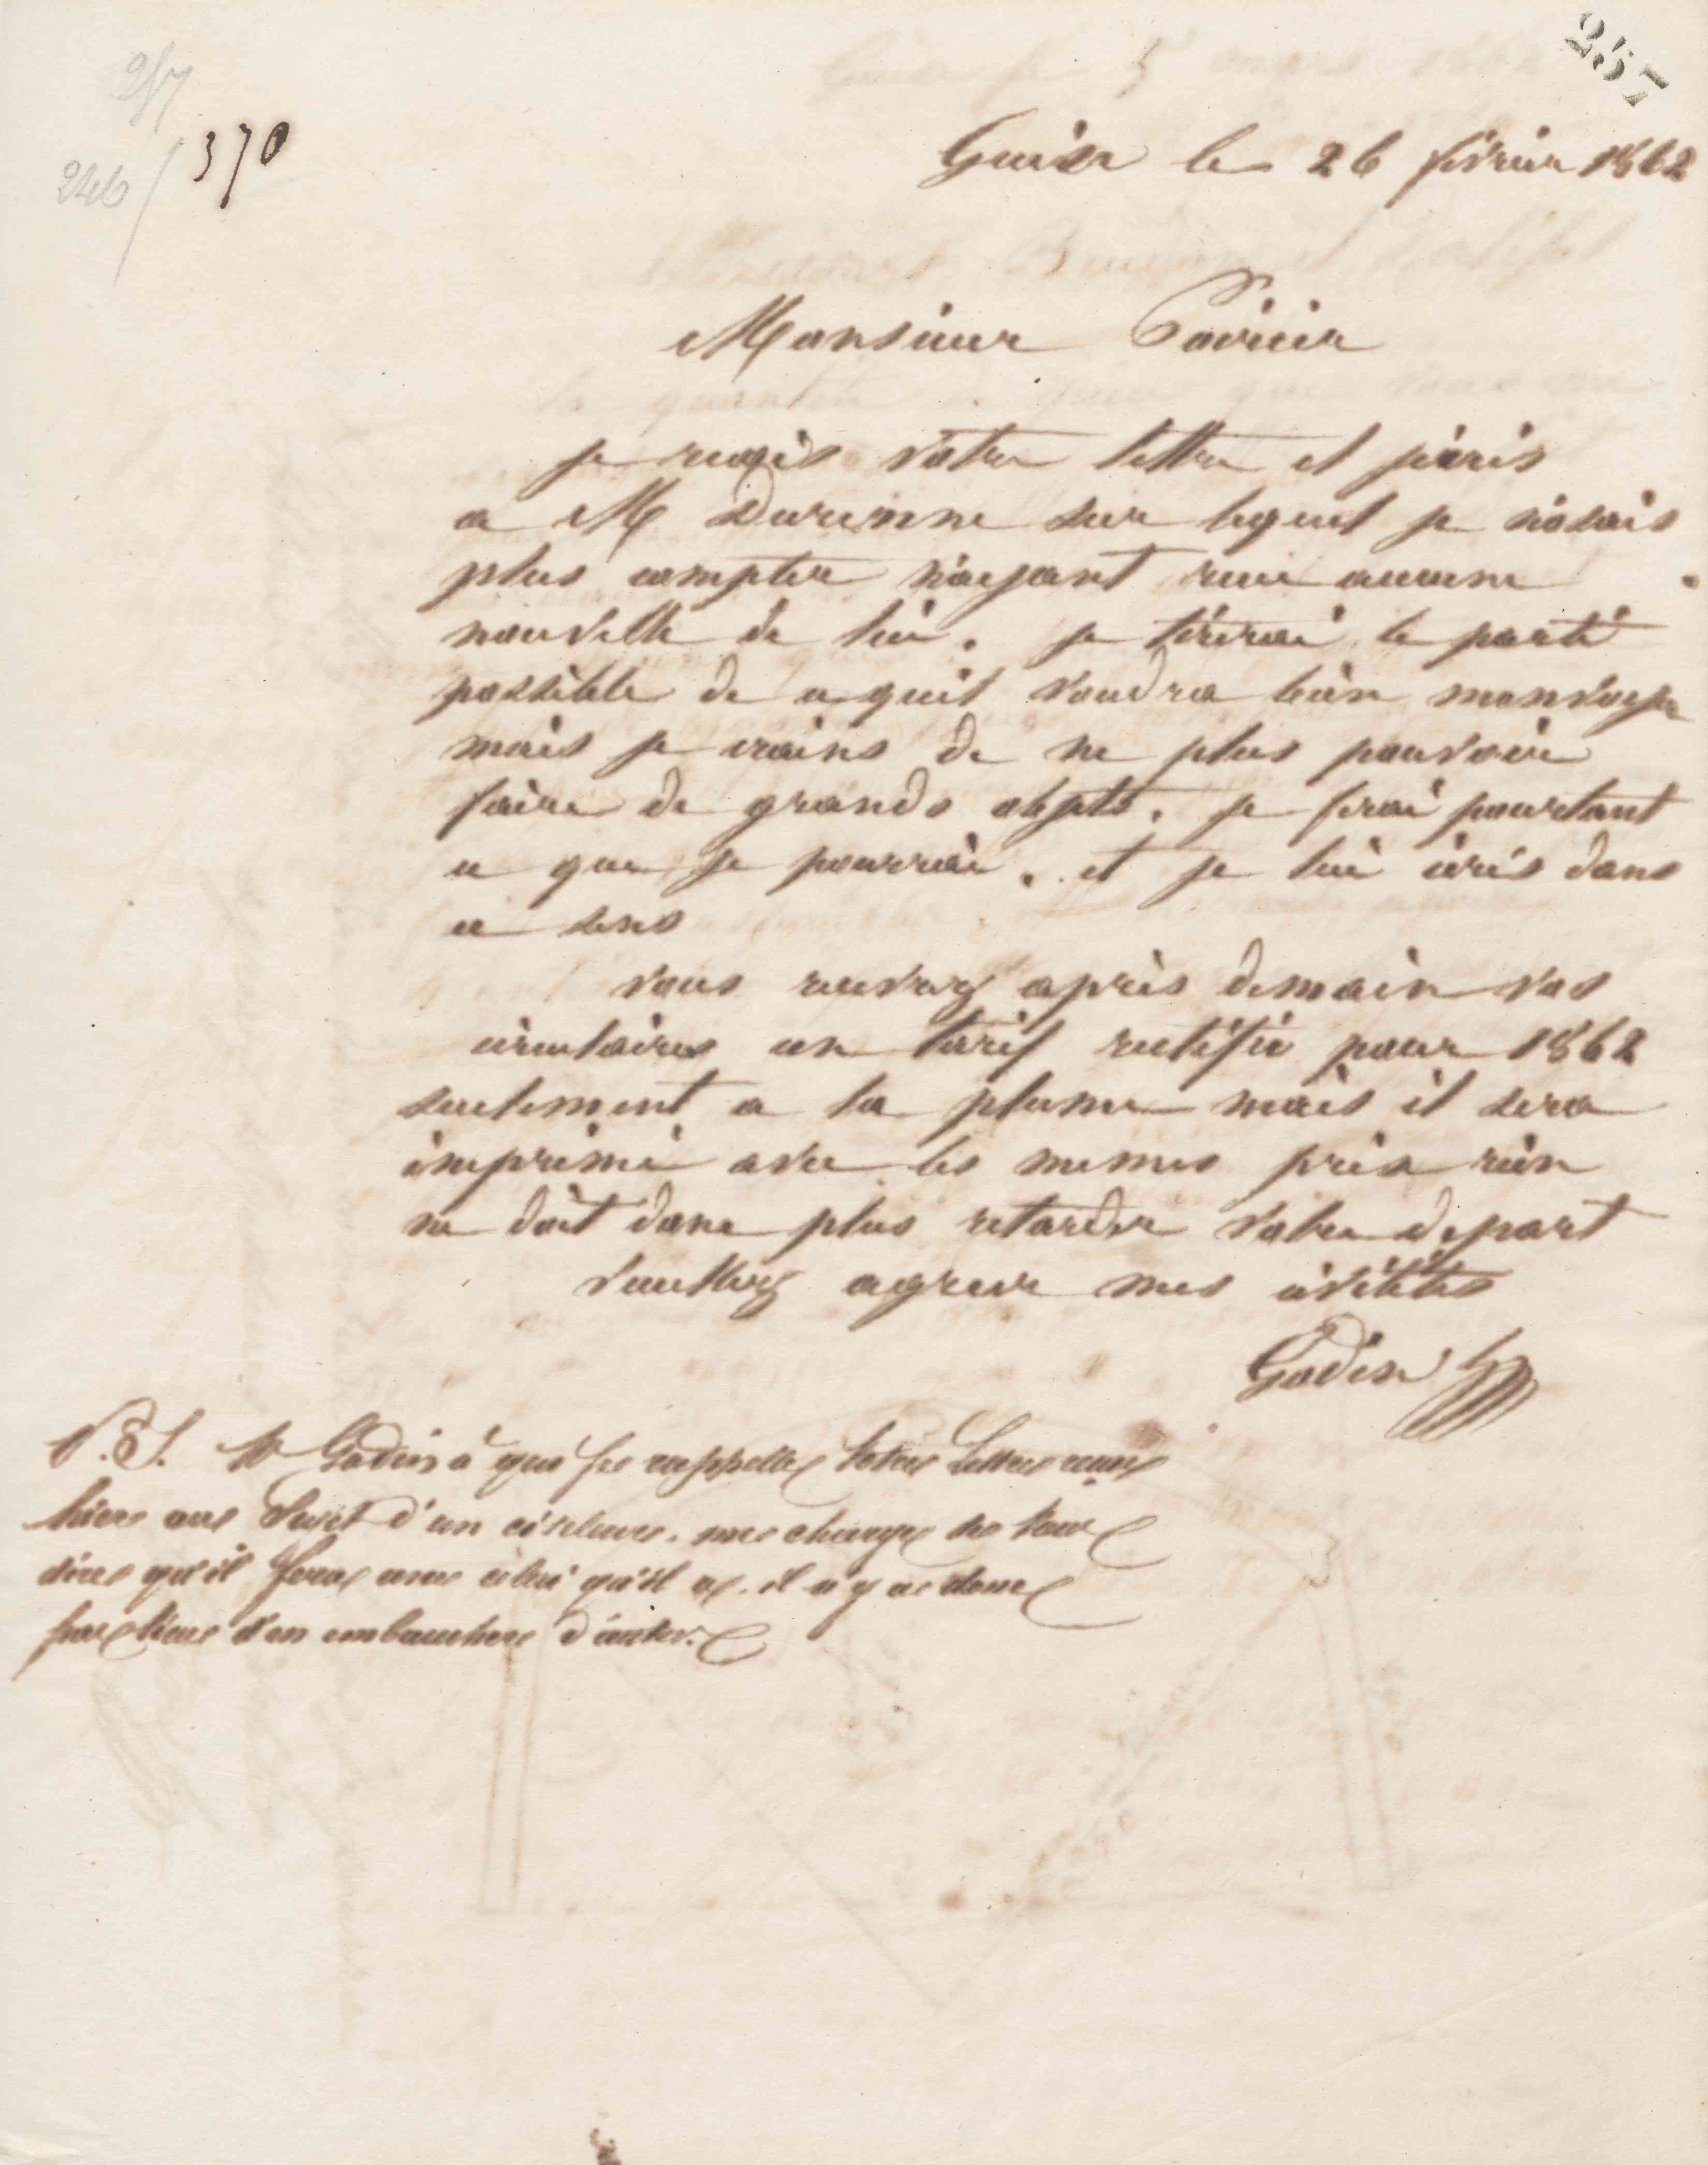 257
257
246 / 370
Guise le 26 février 1862
Monsieur Poirier
je reçois votre lettre et j'écris
a M Durenne sur lequel je n'osais
plus compter n'ayant reçu aucune
nouvelle de lui. je tirerai le parti
possible de ce quil voudra bien menvoyer
mais je crains de ne plus pouvoir
faire de grands objets. je ferai pourtant
ce que je pourrai. et je lui écris dans
ce sens
vous recevrez après demain vos
circulaires un tarif rectifié pour 1862
seulement a la plume mais il sera
imprimé avec les memes prix rien
ne doit donc plus retarder votre depart
veuillez agreer mes civilités
Godin
P.S. Mr Godin à qui je rappelle votre lettre reçue
hier au sujet d'un ciseleur. me charge de vous
dire qu'il fera avec celui qu'il a. il n'y a donc
pas lieu d'en embaucher d'autre.